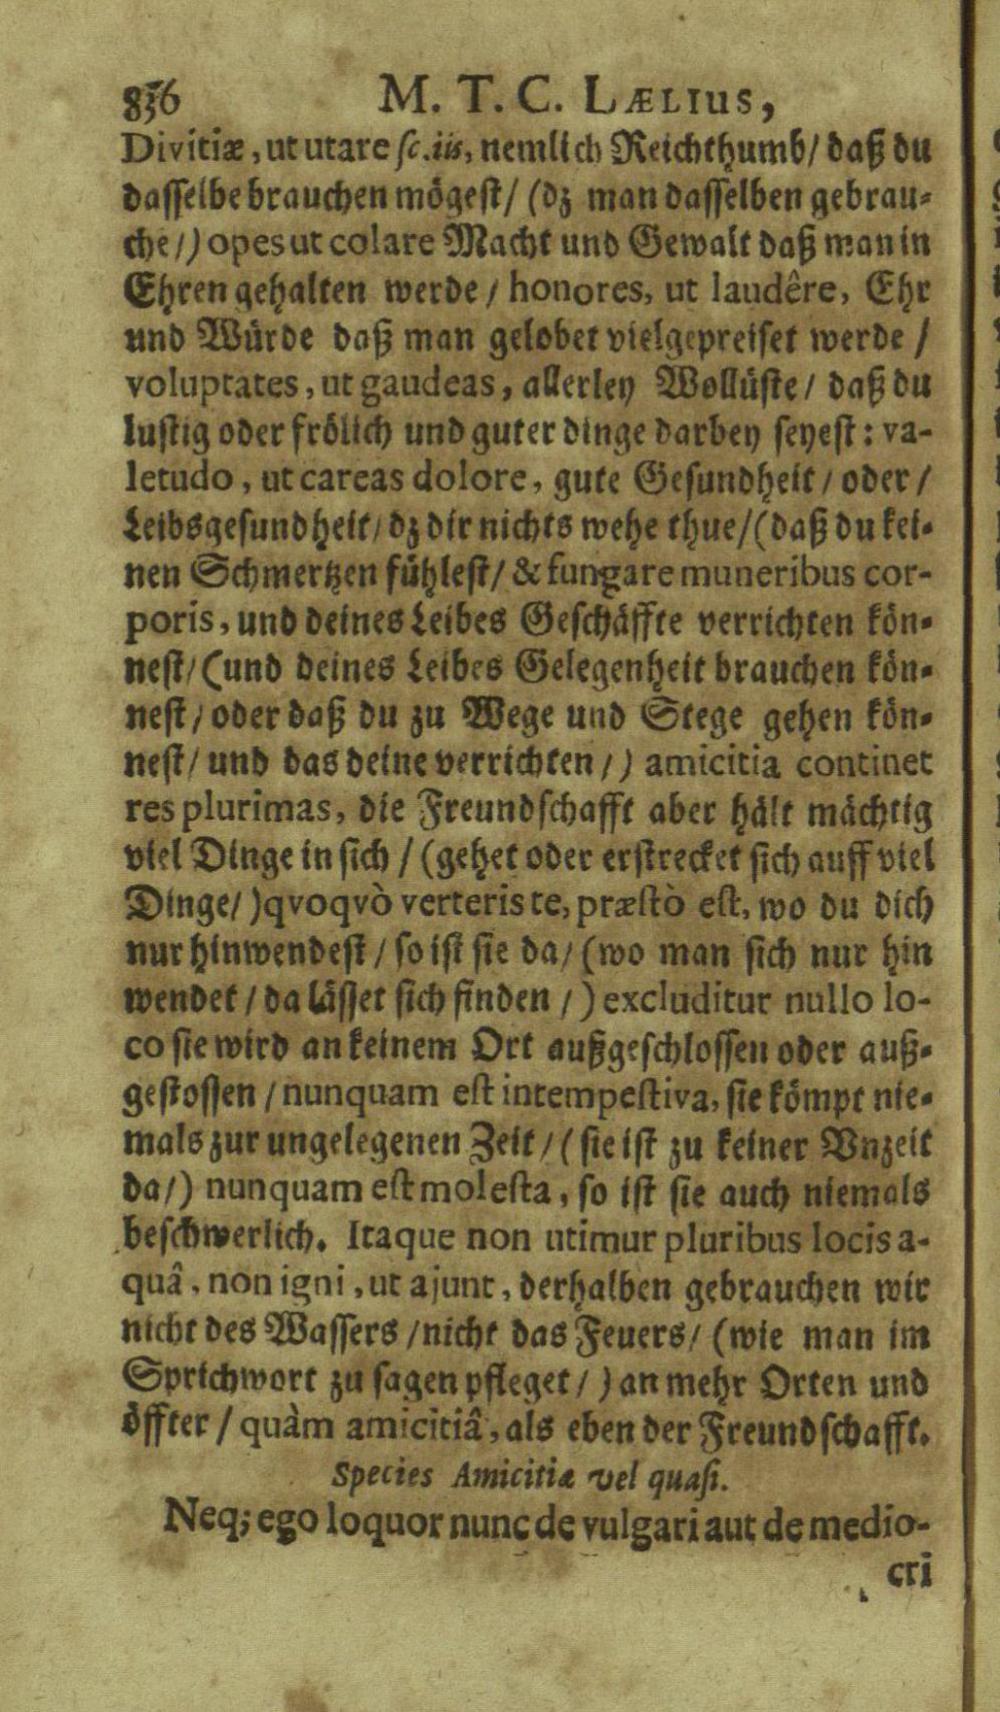 836 M. T. C. LÆLIUS,
Divitiæ, ut utare sc. iis, nemlich Reichthumb/ daß du
dasselbe brauchen mögest/ (dz man dasselben gebrau-
che/) opes ut colare Macht und Gewalt daß man in
Ehren gehalten werde/ honores, ut laudêre, Ehr
und Würde daß man gelobet vielgepreiset werde/
voluptates, ut gaudeas, allerley Wollüste/ daß du
lustig oder frölich und guter dinge darbey seyest: va-
letudo, ut careas dolore, gute Gesundheit/ oder/
Leibsgesundheit/ dz dir nichts wehe thue/ (daß du kei-
nen Schmertzen fühlest/ & fungare muneribus cor-
poris, und deines Leibes Geschäffte verrichten kön-
nest/ (und deines Leibes Gelegenheit brauchen kön-
nest/ oder daß du zu Wege und Stege gehen kön-
nest/ und das deine verrichten/) amicitia continet
res plurimas, die Freundschafft aber hält mächtig
viel Dinge in sich/ (gehet oder erstrecket sich auff viel
Dinge/) qvoqvò verteris te, præstò est, wo du dich
nur hinwendest/ so ist sie da/ (wo man sich nur hin
wendet/ da lässet sich finden/) excluditur nullo lo-
co sie wird an keinem Ort außgeschlossen oder auß-
gestossen/ nunquam est intempestiva, sie kömpt nie-
mals zur ungelegenen Zeit/ (sie ist zu keiner Vnzeit
da/) nunquam est molesta, so ist sie auch niemals
beschwerlich. Itaque non utimur pluribus locis a-
quâ, non igni, ut ajunt, derhalben gebrauchen wir
nicht des Wassers/ nicht das Feuers/ (wie man im
Sprichwort zu sagen pfleget/) an mehr Orten und
öffter/ quàm amicitiâ, als eben der Freundschafft.
Species Amicitiæ vel quasi.
Neq; ego loquor nunc de vulgari aut de medio-
cri